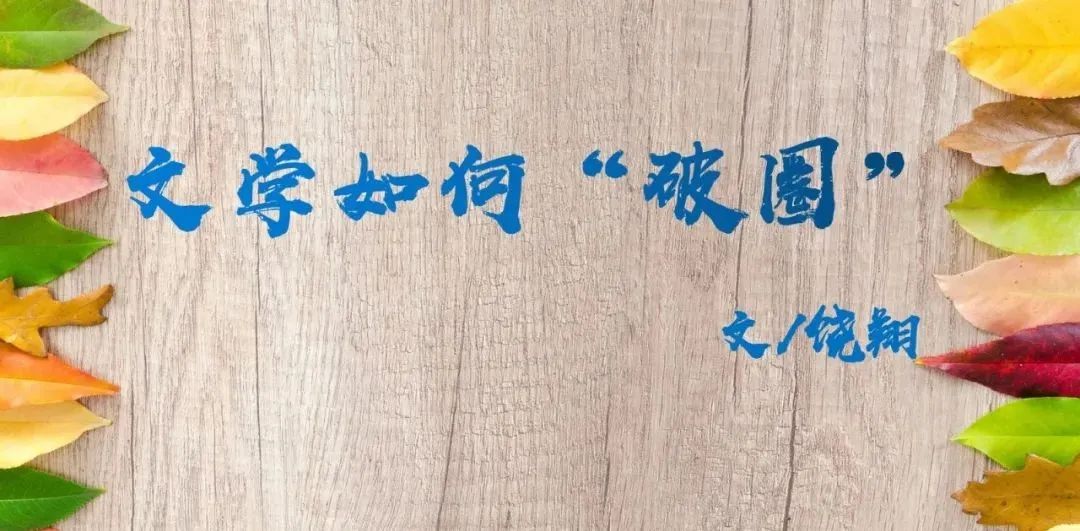 文学如何“破圈”
文/饶翔